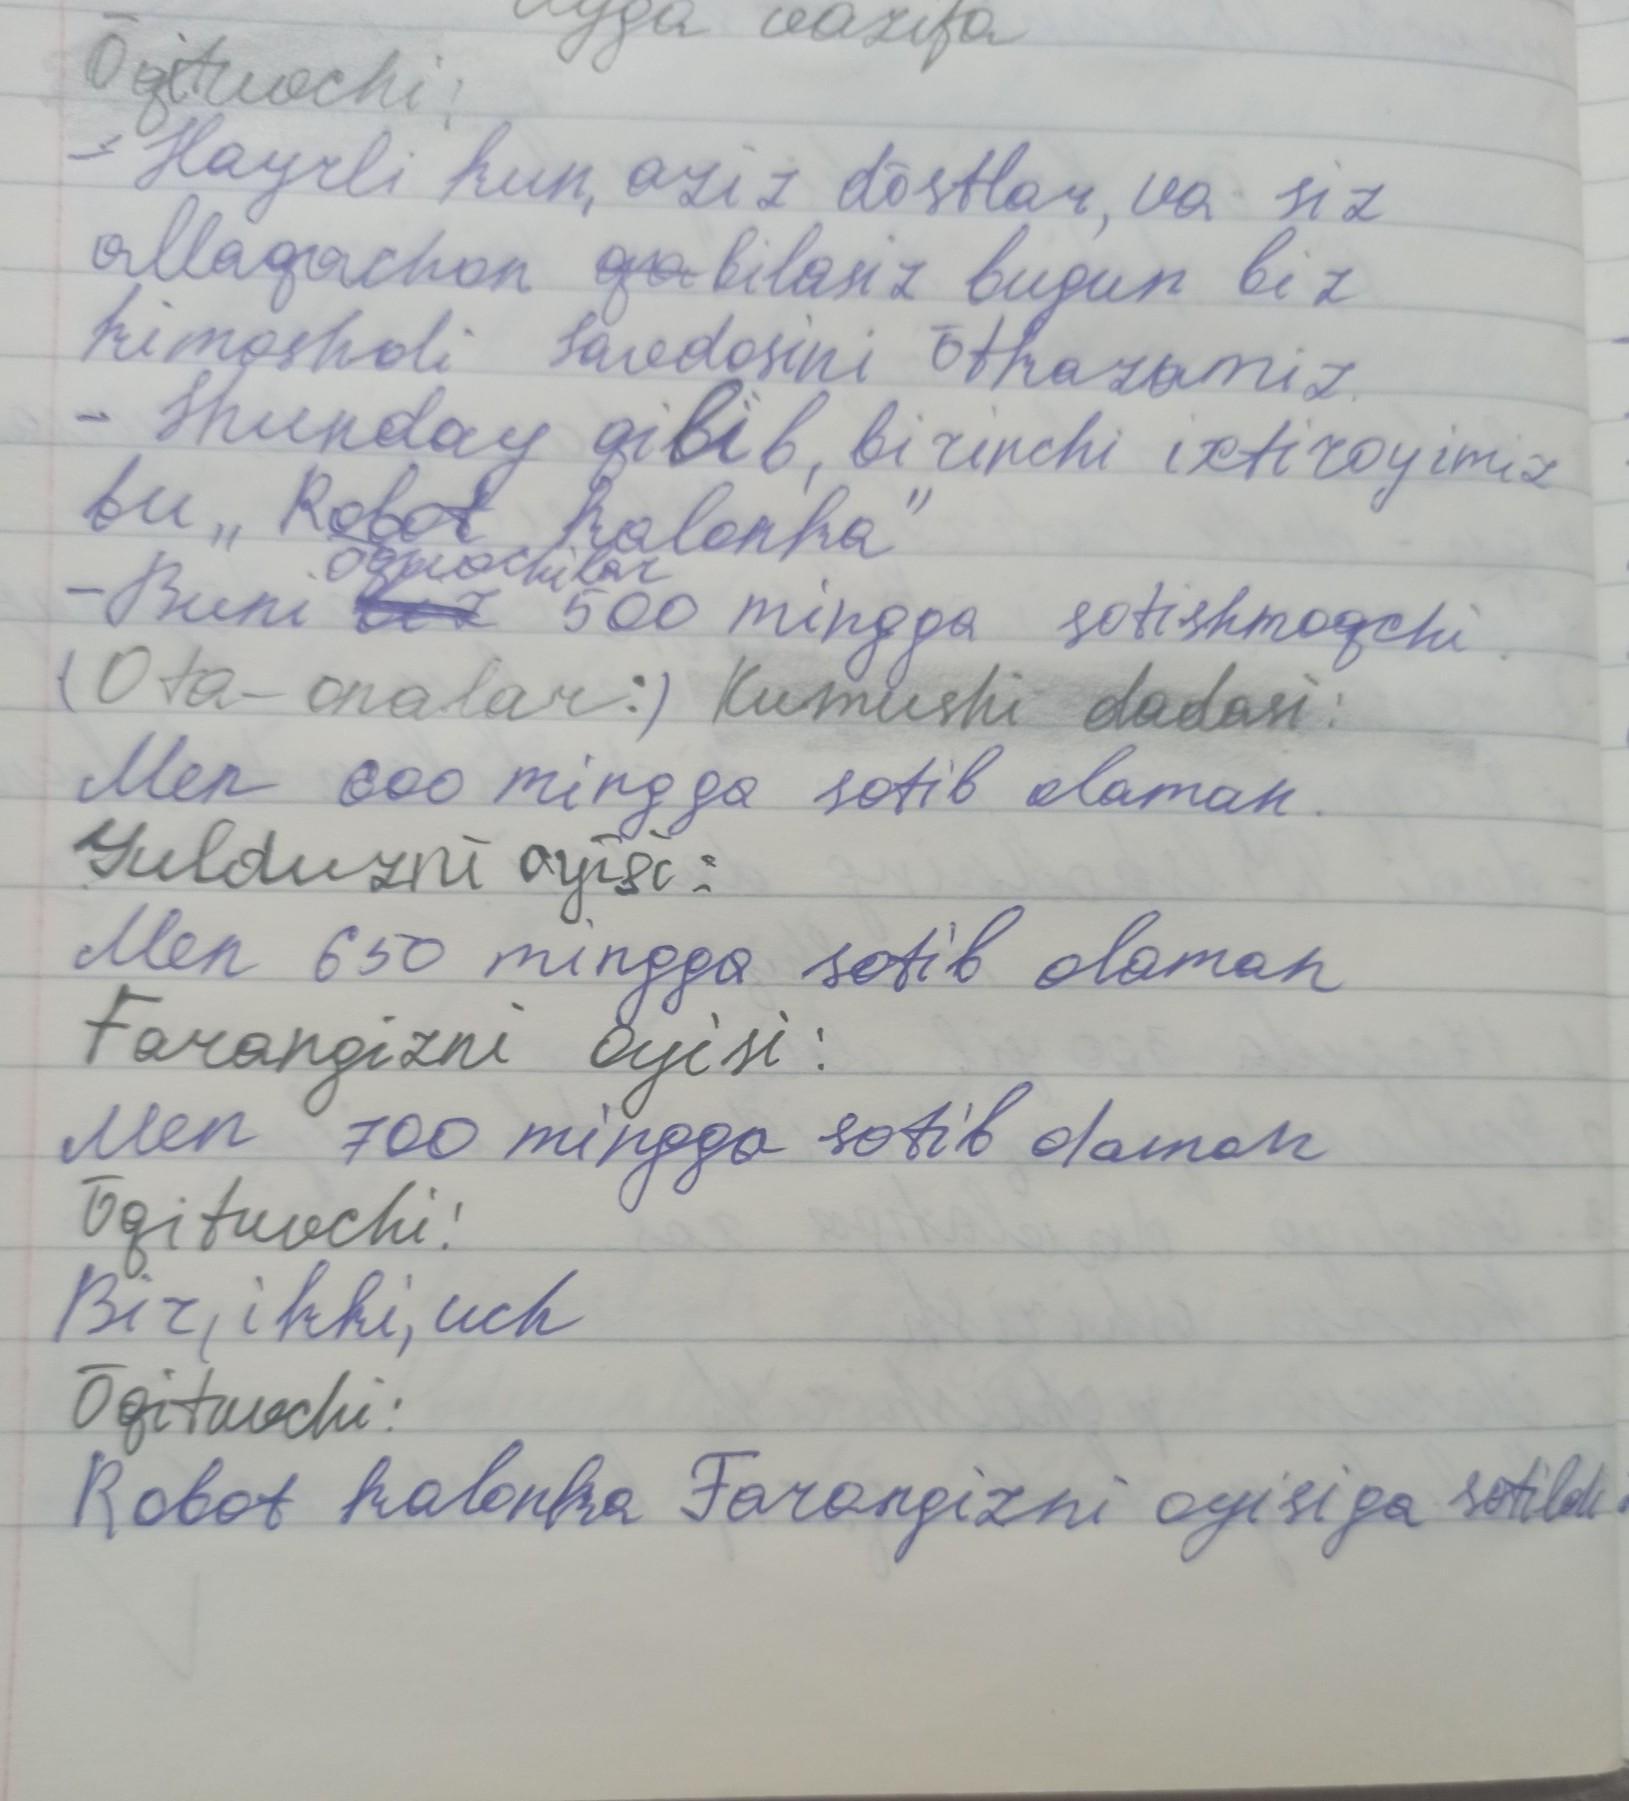 Uyga vazifa
Ōqituvchi:
- Hayrli kun, aziz dōstlar, va siz
allaqachon bilasiz bugun biz
kimoshdi savdosini ōtkazamiz.
- Shunday qilib, birinchi ixtiroyimiz
bu „Robot kalonka”
ōquvchilar
- Buni 500 mingga sotishmoqchi.
(Ota-onalar:) Kumushi dadasi:
Men 600 mingga sotib olaman.
Yulduzni oyisi:
Men 650 mingga sotib olaman
Farangizni oyisi:
Men 700 mingga sotib olaman
Ōqituvchi:
Bir, ikki, uch
Ōqituvchi:
Robot kalonka Farangizni oyisiga sotildi